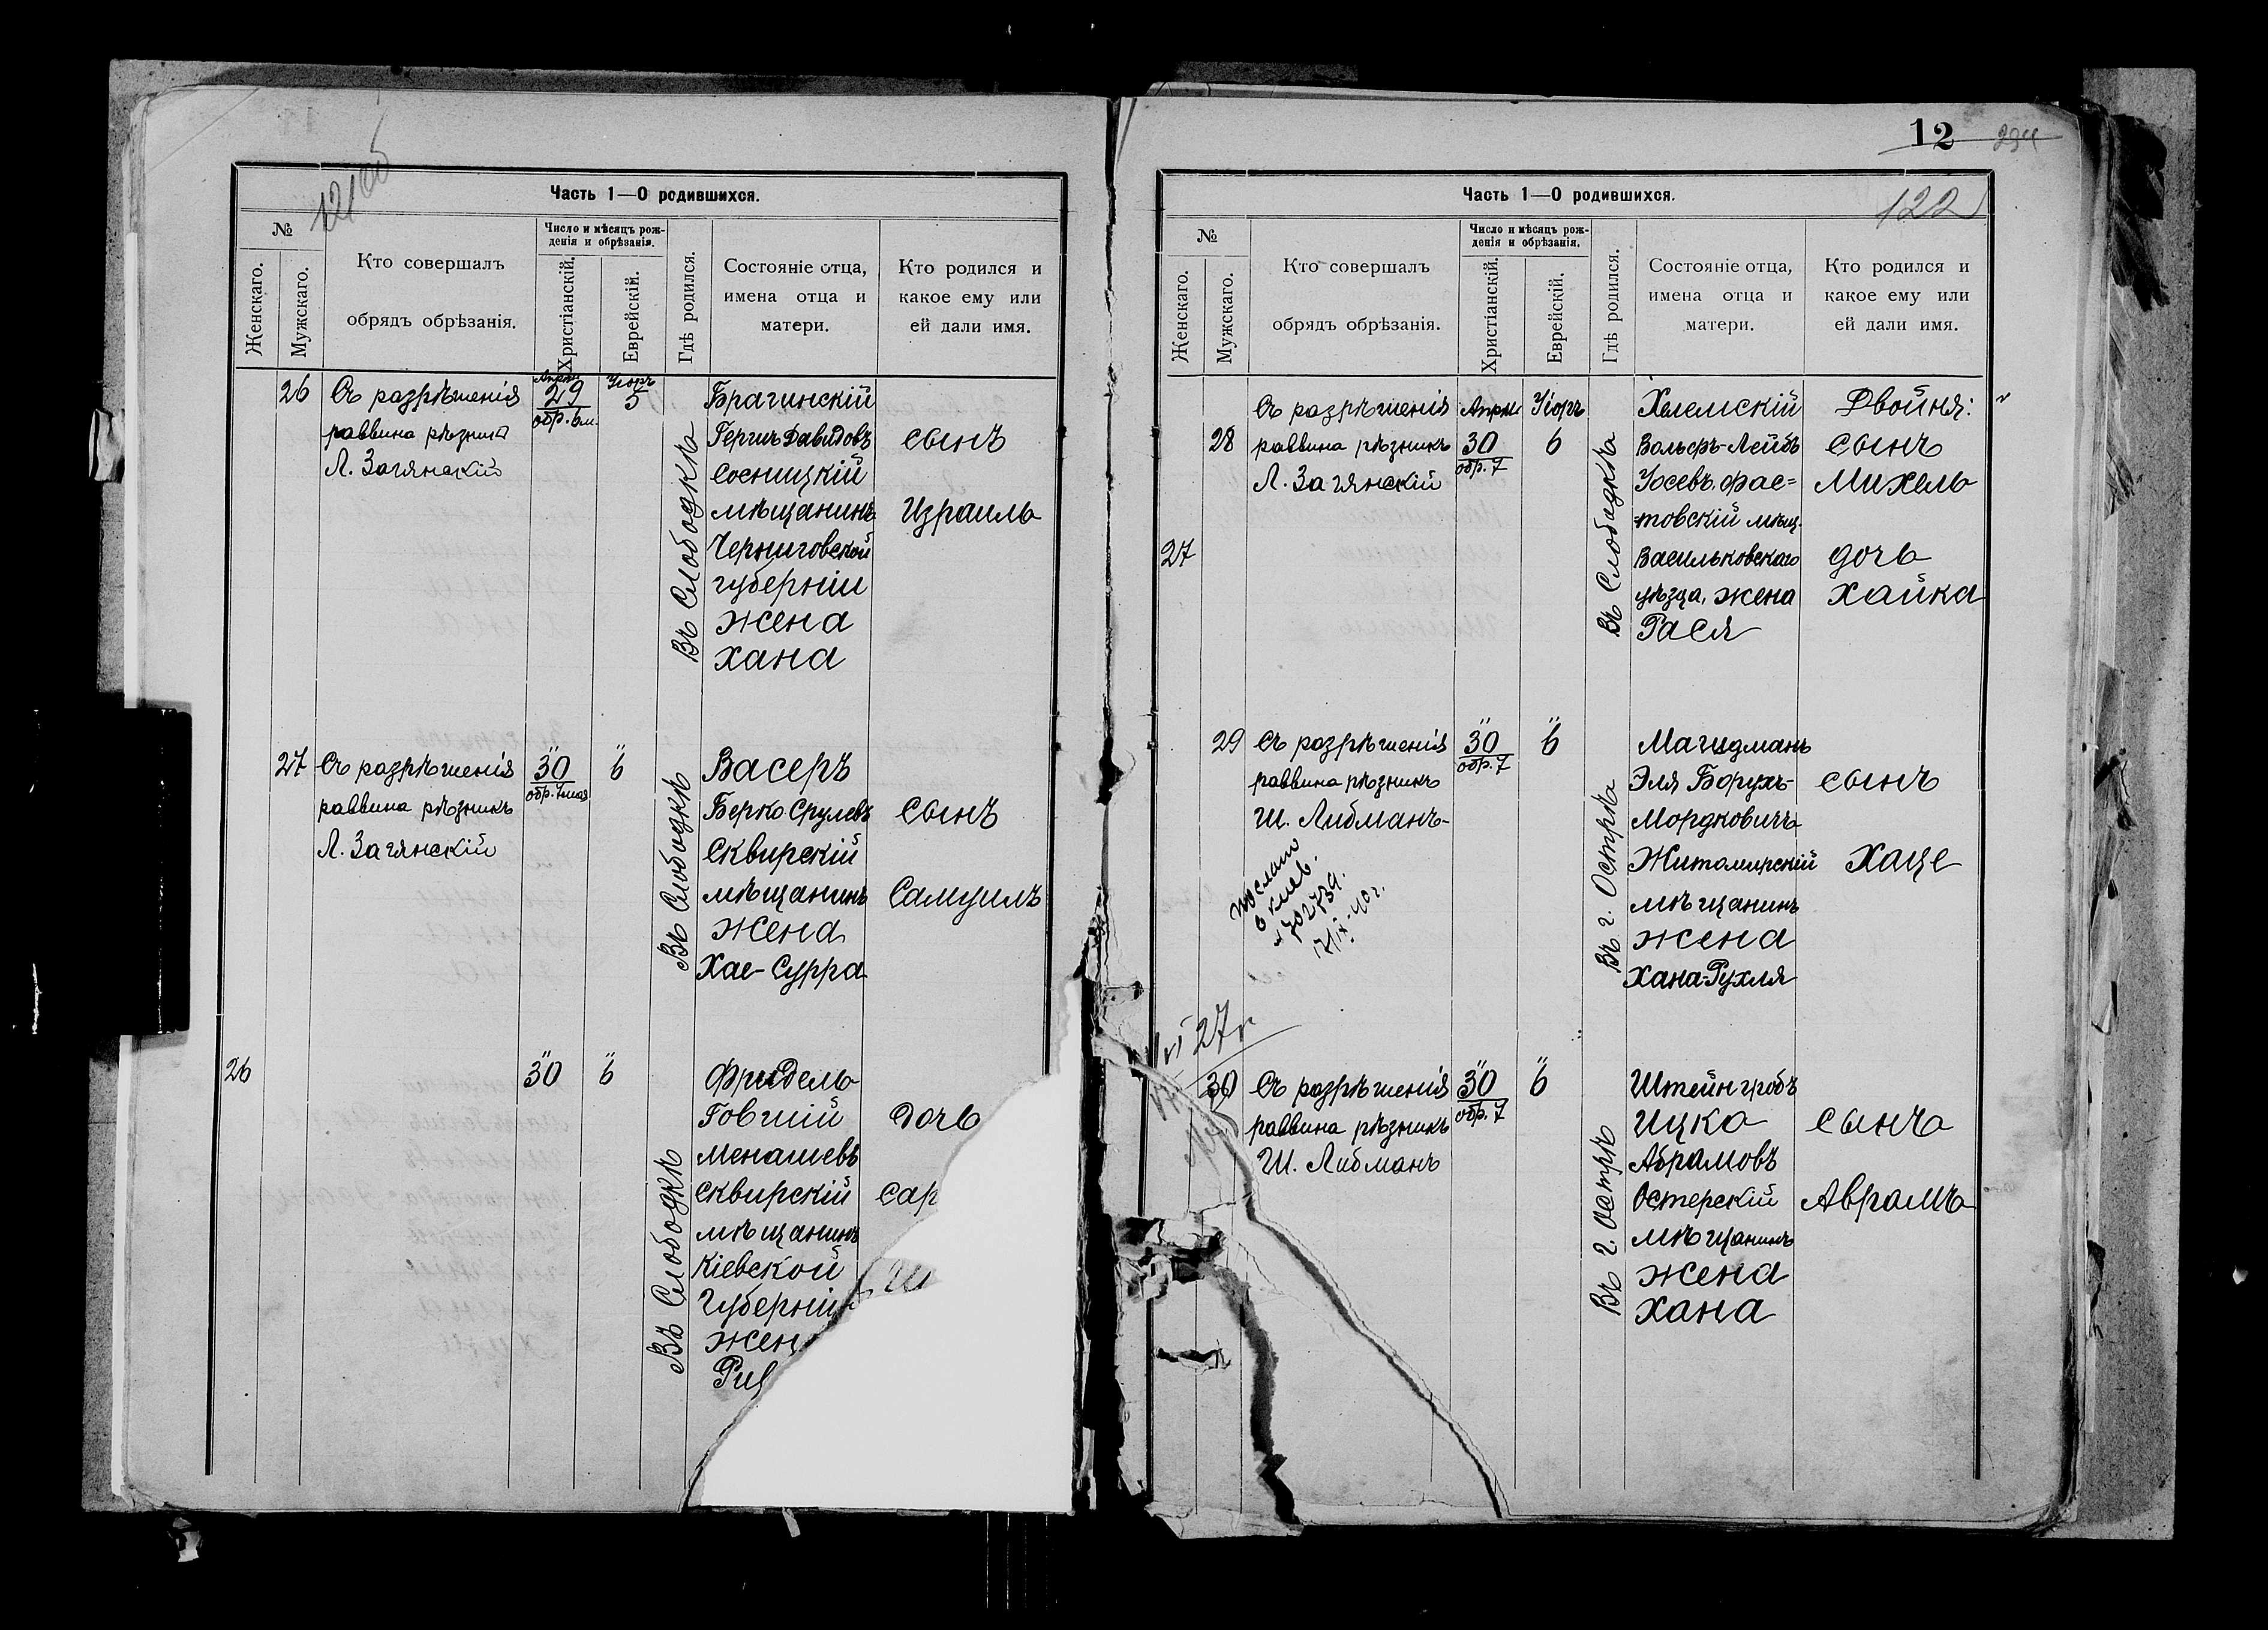 121 об
Часть 1—О родившихся.
№
Женскаго.
Мужскаго.
Кто совершалъ
обрядъ обрѣзанія.
Число и мѣсяцъ рож-
денія и обрѣзанія.
Христіанскій.
Еврейскій.
Гдѣ родился.
Состояніе отца,
имена отца и
матери.
Кто родился и
какое ему или
ей дали имя.
26
Съ разрѣшенія
раввина рѣзникъ
Л. Загянскій
Апрѣл
29
обр. 6 м.
Уіоръ
5
Въ Слободкѣ
Брагинскій
Гершъ Давидовъ
Сосницкій
мѣщанинъ
Черниговской
губерніи
жена
Хана
сынъ
Израиль
27
Съ разрѣшенія
раввина рѣзникъ
Л. Загянскій
30
обр. 7 мая
6
Въ Слободкѣ
Васеръ
Берко Срулевъ
Сквирскій
мѣщанинъ
жена
Хае-Сурра
сынъ
Самуилъ
26
30
6
Въ Слободкѣ
Фридель
Говшій
Менашевъ
Сквирскій
мѣщанинъ
Кіевской
Губерніи
жен
дочь
Сар
12
122
Часть 1—О родившихся.
№
Женскаго.
Мужскаго.
Кто совершалъ
обрядъ обрѣзанія.
Число и мѣсяцъ рож-
денія и обрѣзанія.
Христіанскій.
Еврейскій.
Гдѣ родился.
Состояніе отца,
имена отца и
матери.
Кто родился и
какое ему или
ей дали имя.
28
27
Съ разрѣшенія
раввина рѣзникъ
Л. Загянскій
Апрѣл
30
обр. 7
Уіоръ
6
Въ Слободкѣ
Хелемскій
Вольфъ-Лейбъ
Іосевъ, Фас=
товскій мѣщ.
Васильковскаго
уѣзда, жена
Рася
Двойня:
сынъ
Михель
дочь
Хайка
29
Съ разрѣшенія
раввина рѣзникъ
Ш. Либманъ
послано
в Киев.
17/IX-40 г.
30
обр. 7
6
Въ г. Острѣ
Магидманъ
Эля Борухъ-
Мордковичъ
Житомирскій
мѣщанинъ
жена
Хана-Рухля
сынъ
Хаце
27 г
30
Съ разрѣшенія
раввина рѣзникъ
Ш. Либманъ
30
обр. 7
6
Въ г. Острѣ
Штейнгробъ
Ицко
Абрамовъ
Остерскій
мѣщанинъ
жена
Хана
сынъ
Аврамъ